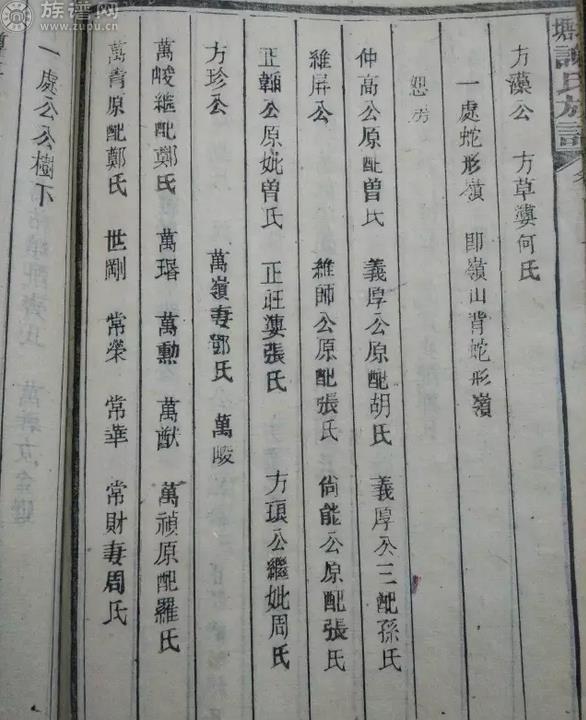 族谱网
www.zupu.cn
塘謝氏族譜
方藻公 方草妻何氏
一處蛇形嶺 即嶺山背蛇形嶺
恕房
仲高公原配曾氏 義厚公原配胡氏 義厚公三配孫氏
維屏公 維師公原配張氏 尙能公原配張氏
正韛公原妣曾氏 正莊妻張氏 方瑣公繼妣周氏
方珍公 萬嶺妻鄧氏 萬畯
萬畯繼配鄭氏 萬瑉 萬勳 萬猷 萬禎原配羅氏
萬青原配鄭氏 世剛 常榮 常華 常財妻周氏
一處公公樹下